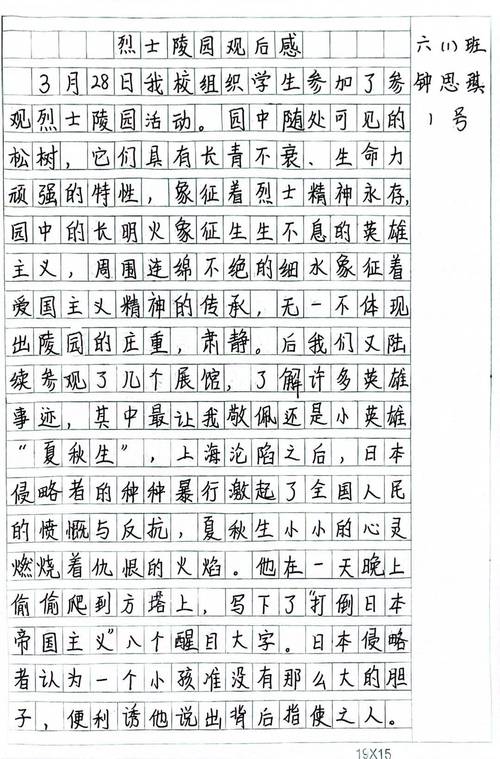 烈士陵园观后感
3月28日我校组织学生参加了参
观烈士陵园活动。园中随处可见的
松树，它们具有长青不衰、生命力
顽强的特性，象征着烈士精神永存，
园中的长明火象征生生不息的英雄
主义，周围连绵不绝的细水象征着
爱国主义精神的传承，无一不体现
出陵园的庄重，肃静。后我们又陆
续参观了几个展馆，了解许多英雄
事迹，其中最让我敬佩还是小英雄
“夏秋生”，上海沦陷之后，日本
侵略者的种种暴行激起了全国人民
的愤慨与反抗，夏秋生小小的心灵
燃烧着仇恨的火焰。他在一天晚上
偷偷爬到方塔上，写下了“打倒日本
帝国主义”八个醒目大字。日本侵略
者认为一个小孩准没有那么大的胆
子，便利诱他说出背后指使之人。
六(1)班
钟思琪
1号
19X15